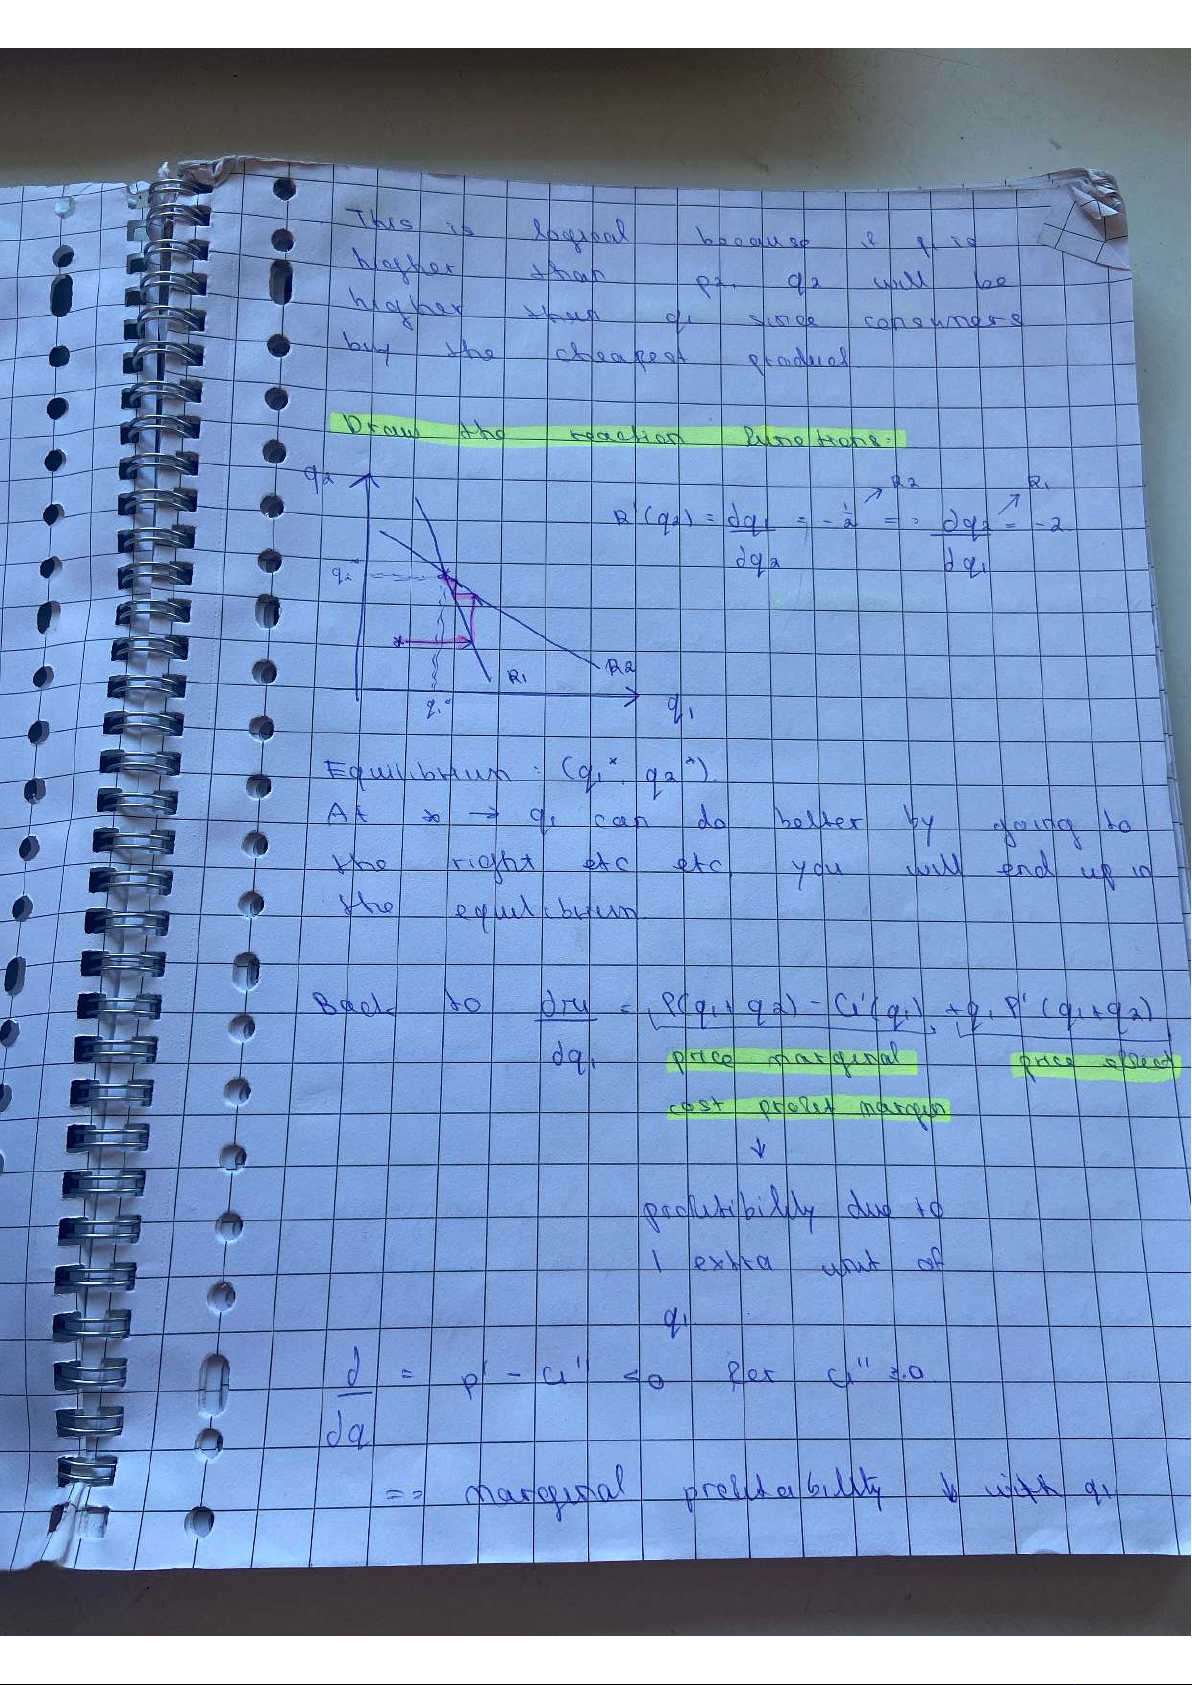 This is logical because if q1 is
higher than p2, q2 will be
higher than q1 since consumers
buy the cheapest product.
Draw the reaction functions:
q2
R'(q2) = dq1/dq2 = -1/2 => dq2/dq1 = -2
R2
R1
q2*
R2
R1
q1*
q1
Equilibrium: (q1*, q2*)
At * → q1 can do better by going to
the right etc etc, you will end up in
the equilibrium
Back to dπ1/dq1 = P(q1+q2) - C1'(q1) + q1 P'(q1+q2)
price marginal
price effect
cost profit margin
↓
profitibility due to
1 extra unit of
q1
d/dq = p' - C1'' <0 for C1'' >0
=> marginal profitability ↓ with q1